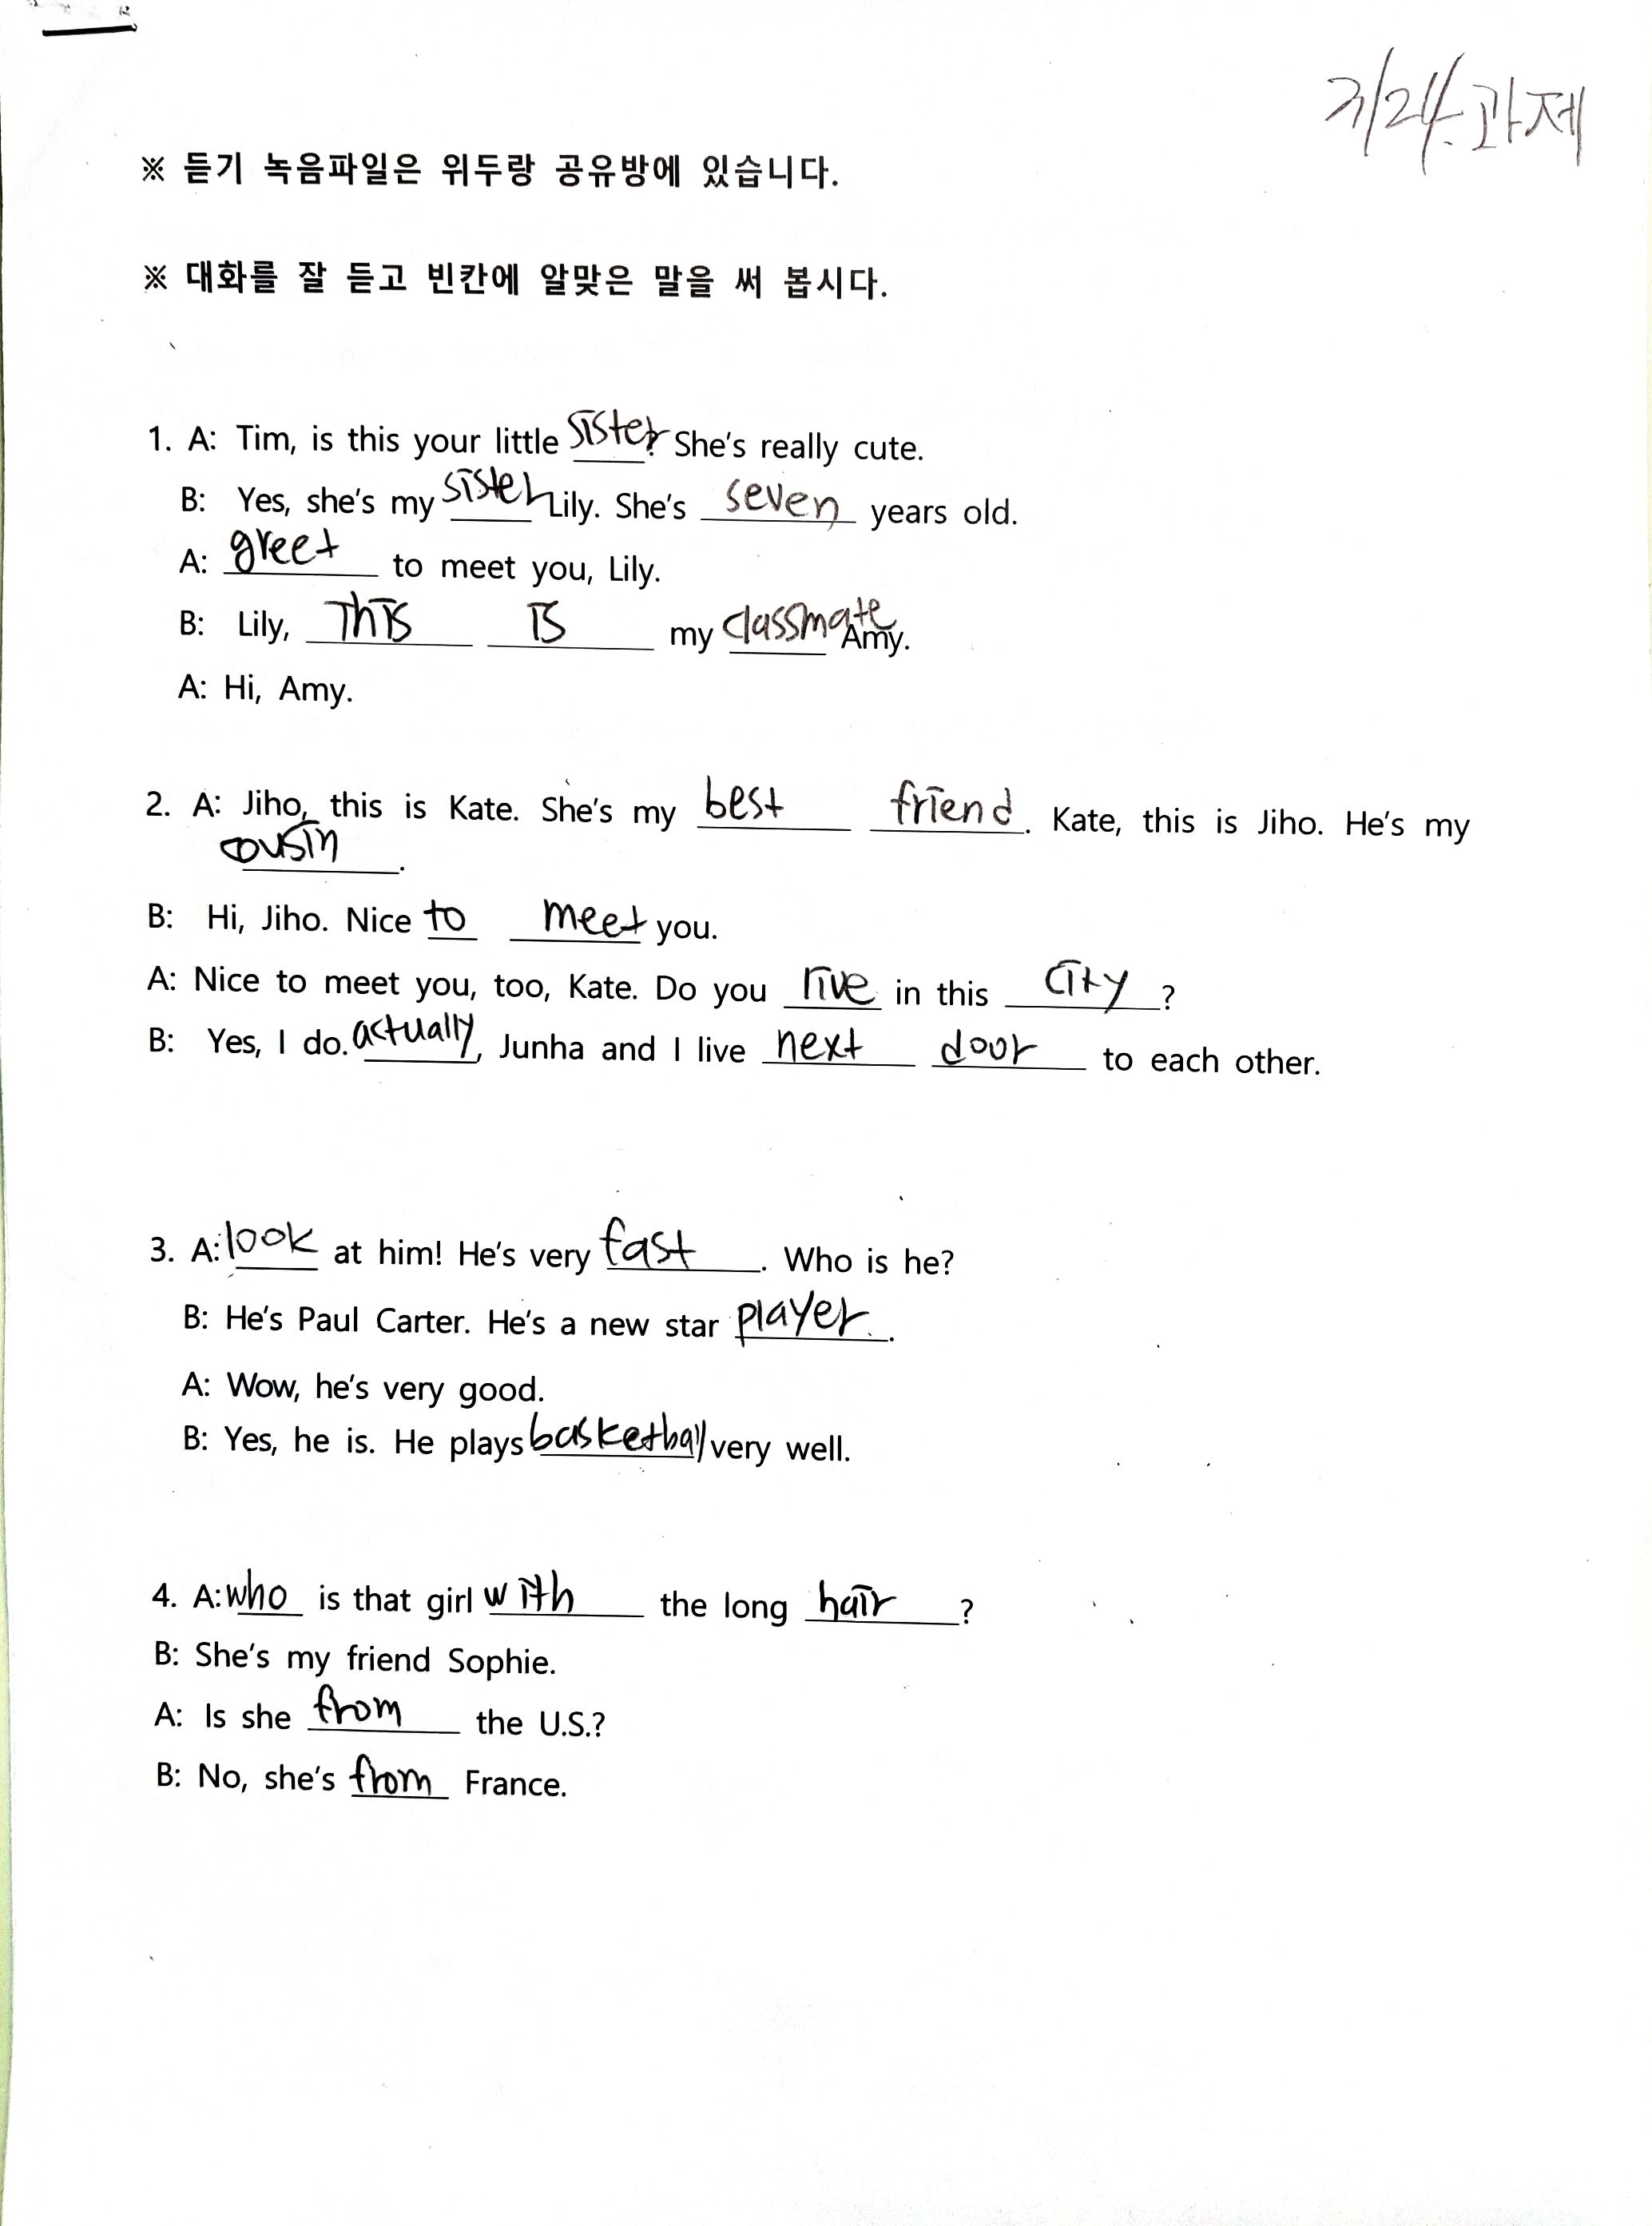 7/24. 과제
※ 듣기 녹음파일은 위두랑 공유방에 있습니다.
※ 대화를 잘 듣고 빈칸에 알맞은 말을 써 봅시다.
1. A: Tim, is this your little sister? She's really cute.
B: Yes, she's my sister Lily. She's seven years old.
A: greet to meet you, Lily.
B: Lily, This is my classmate Amy.
A: Hi, Amy.
2. A: Jiho, this is Kate. She's my best friend. Kate, this is Jiho. He's my
cousin.
B: Hi, Jiho. Nice to meet you.
A: Nice to meet you, too, Kate. Do you rive in this city?
B: Yes, I do. actually, Junha and I live next door to each other.
3. A: look at him! He's very fast. Who is he?
B: He's Paul Carter. He's a new star player.
A: Wow, he's very good.
B: Yes, he is. He plays basketball very well.
4. A: who is that girl with the long hair?
B: She's my friend Sophie.
A: Is she from the U.S.?
B: No, she's from France.